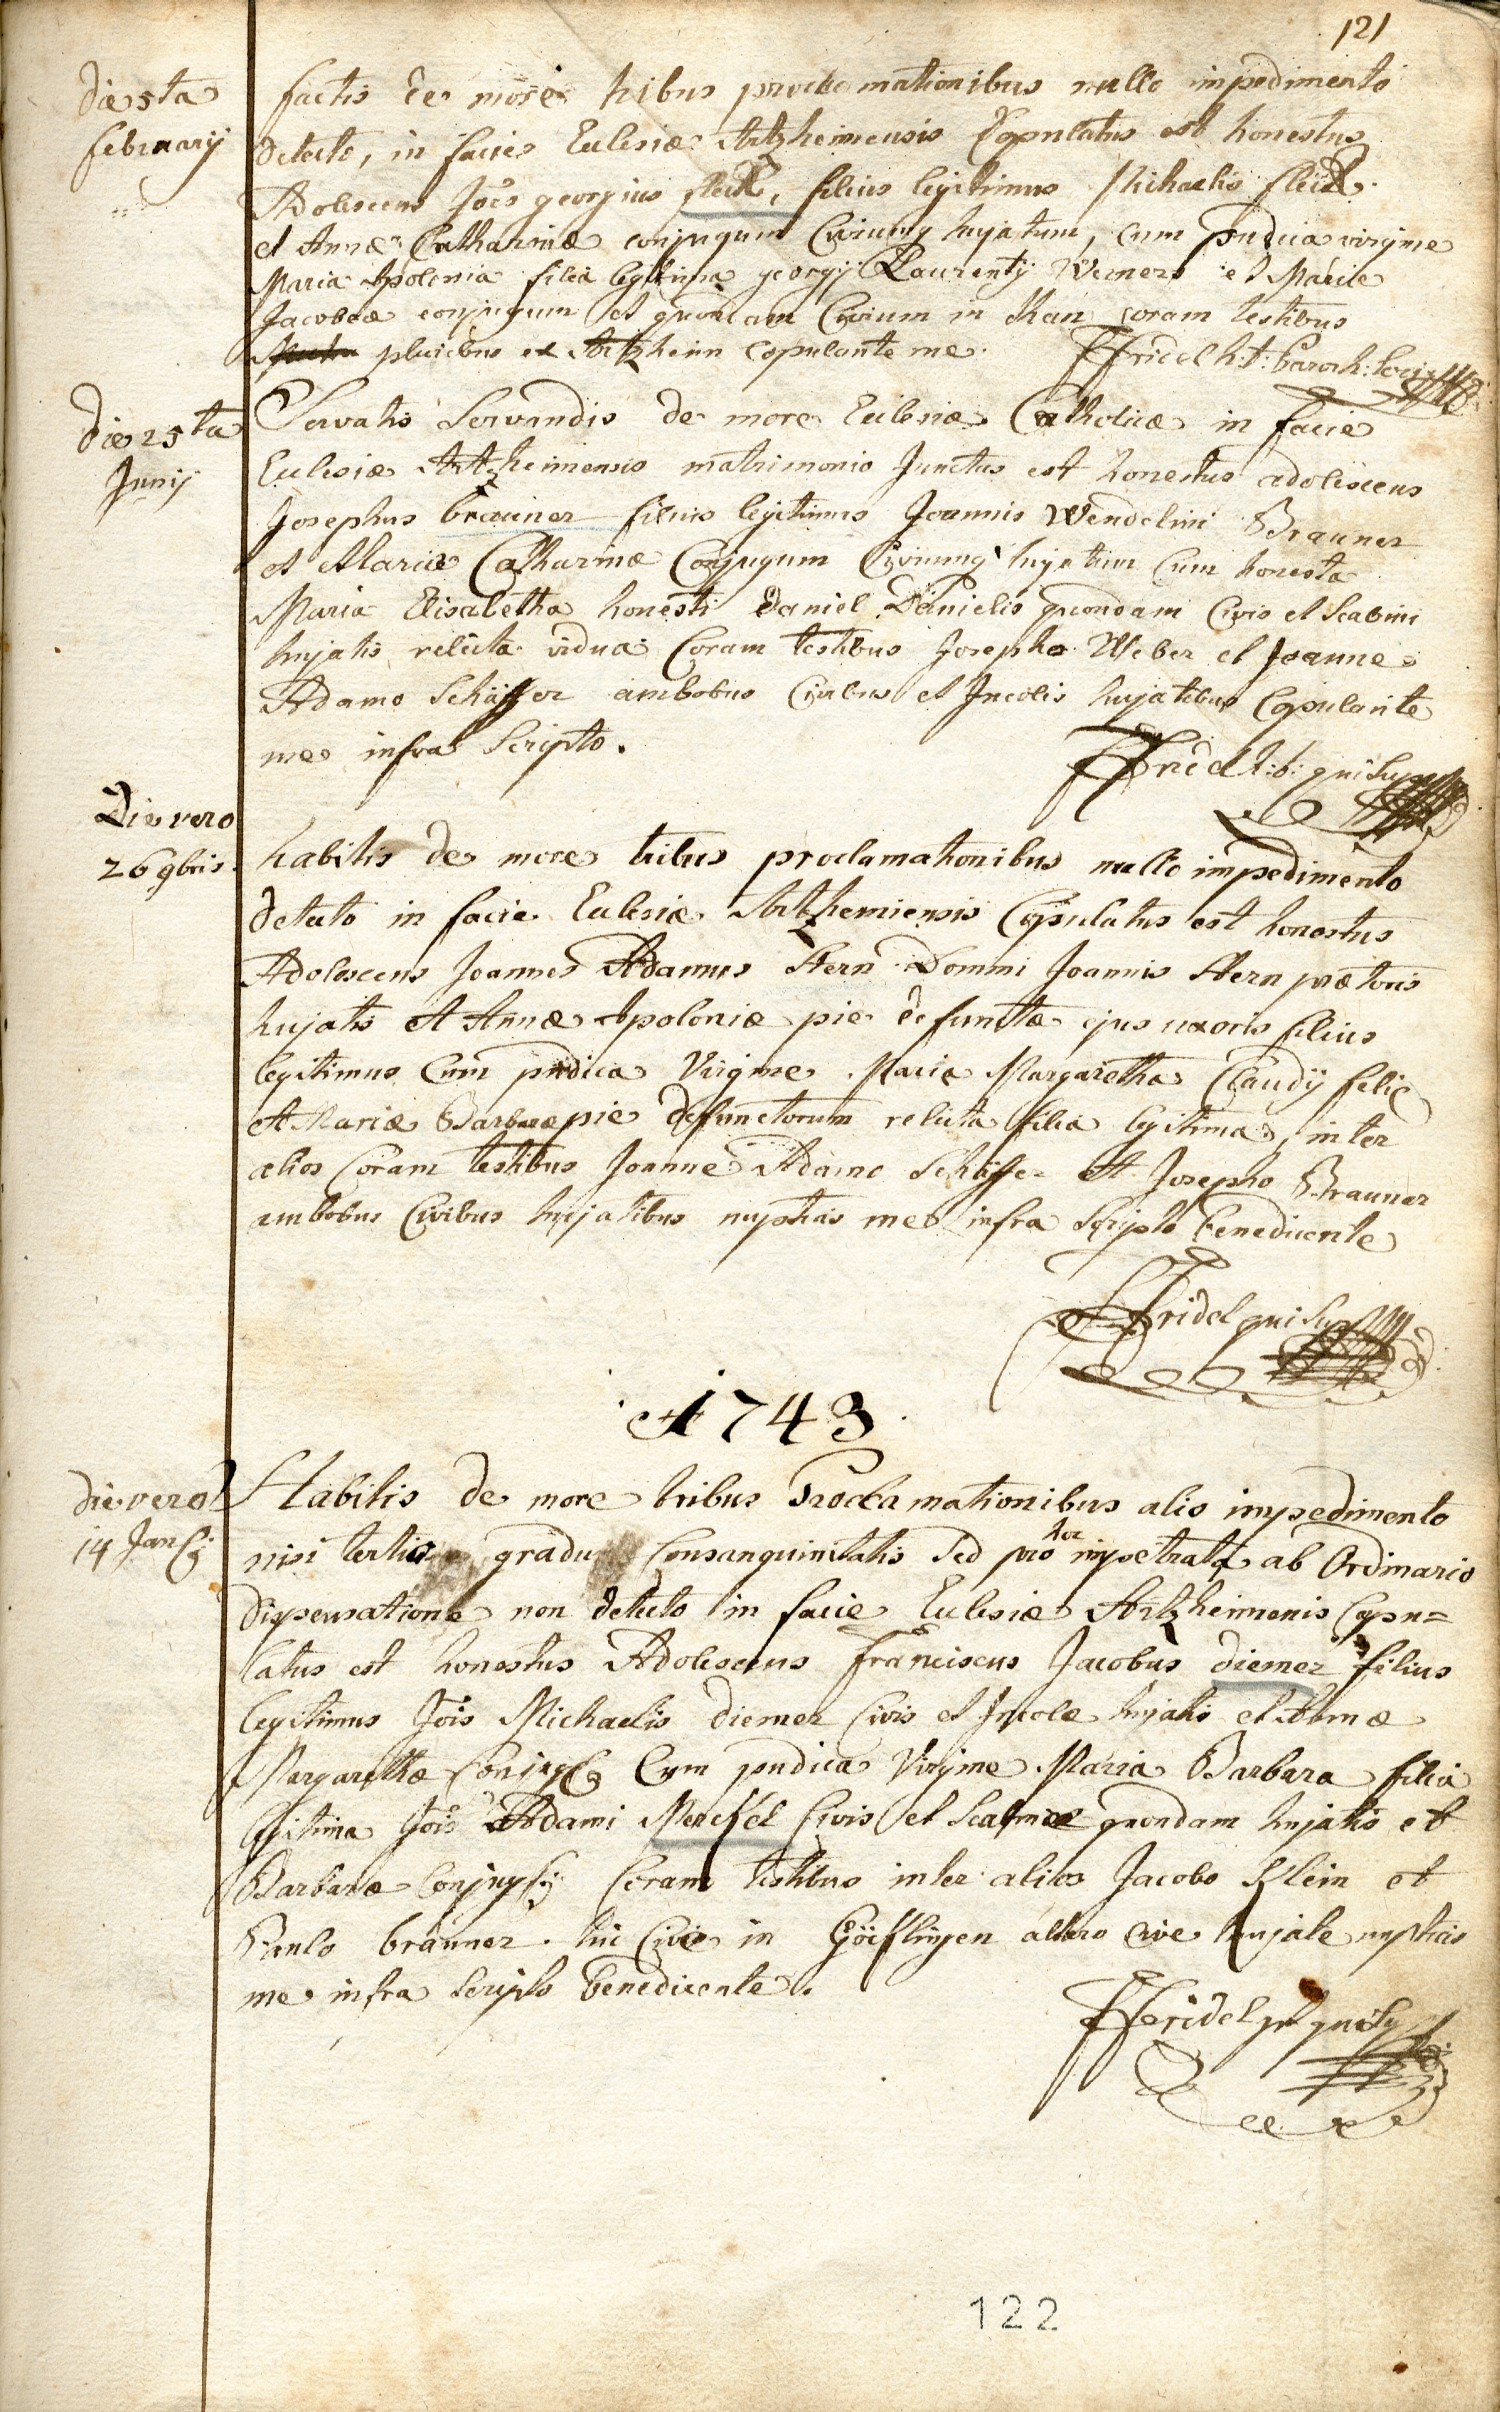 121
die 5ta
february
factis de more tribus proclamationibus nullo impedimento
detecto, in facie Eclesiæ Artzheimensis Copulatus est honestus
Adolescens Jois georgius fleck, filius legitimus Michaelis fleck
et Annæ Catharinæ conjugum Civiumq hujatum, cum pudica virgine
Maria Apolonia filia legitima georgij Laurentij Werners et Mariæ
Jacobeæ conjugum et quondam Civium in coram testibus
pluribus ex Artzheim copulante me. FFridel h:t: Paroch: Loci
die 25ta
Junij
Servatis Servandis de more Eclesiæ Catholicæ in facie
Eclesiæ Artzheimensis matrimonio Junctus est honestus adolescens
Josephus brauner filius legitimus Joannis Wendelini Brauner
et Mariæ Catharinæ Conjugum Civiumq hujatum Cum honesta
Maria Elisabetha honesti Daniel Danielis quondam Civis et Scabini
hujatis relicta vidua Coram testibus Josepho Weber et Joanne
Adamo Schäffer ambobus Civibus et Incolis hujatibus Copulante
me infra Scripto.
FFridel h:t: qui Supra
Die vero
26 9bris.
habitis de more tribus proclamationibus nullo impedimento
detecto in facie Eclesiæ Artzhemiensis Copulatus est honestus
Adolescens Joannes Adamus Stern Domini Joannis Stern prætoris
hujatis et Annæ Apoloniæ pie defunctæ ejus uxoris filius
legitimus Cum pudica Virgine Maria Margaretha Claudij felic
et Mariæ Barbaræ pie defunctorum relicta filia legitima, inter
alios Coram testibus Joanne Adamo Schäffer et Josepho Brauner
ambobus Civibus hujatibus nuptias me infra Scripto benedicente
FFridel qui Supra
A 1743.
die vero
14 Janrij
Habitis de more tribus Proclamationibus alio impedimento
nisi tertio gradu Consanguinitatis Sed pro hoc impetrata ab Ordinario
Dispensatione non detecto in facie Eclesiæ Artzheimenis Copu=
latus est honestus Adolescens franciscus Jacobus diemer filius
legitimus Jois Michaelis diemer Civis et Incolæ hujatis et Annæ
Margarethæ Conjugum Cum pudica Virgine Maria Barbara filia
legitima Jois Adami Merckel Civis et Scabini quondam hujatis et
Barbaræ Conjugum Coram testibus inter alios Jacobo Klein et
Paulo brauner. hic Cive in Göcklingen altero Cive hujate nuptias
me infra Scripto benedicente.
FFridel qui Supra
122